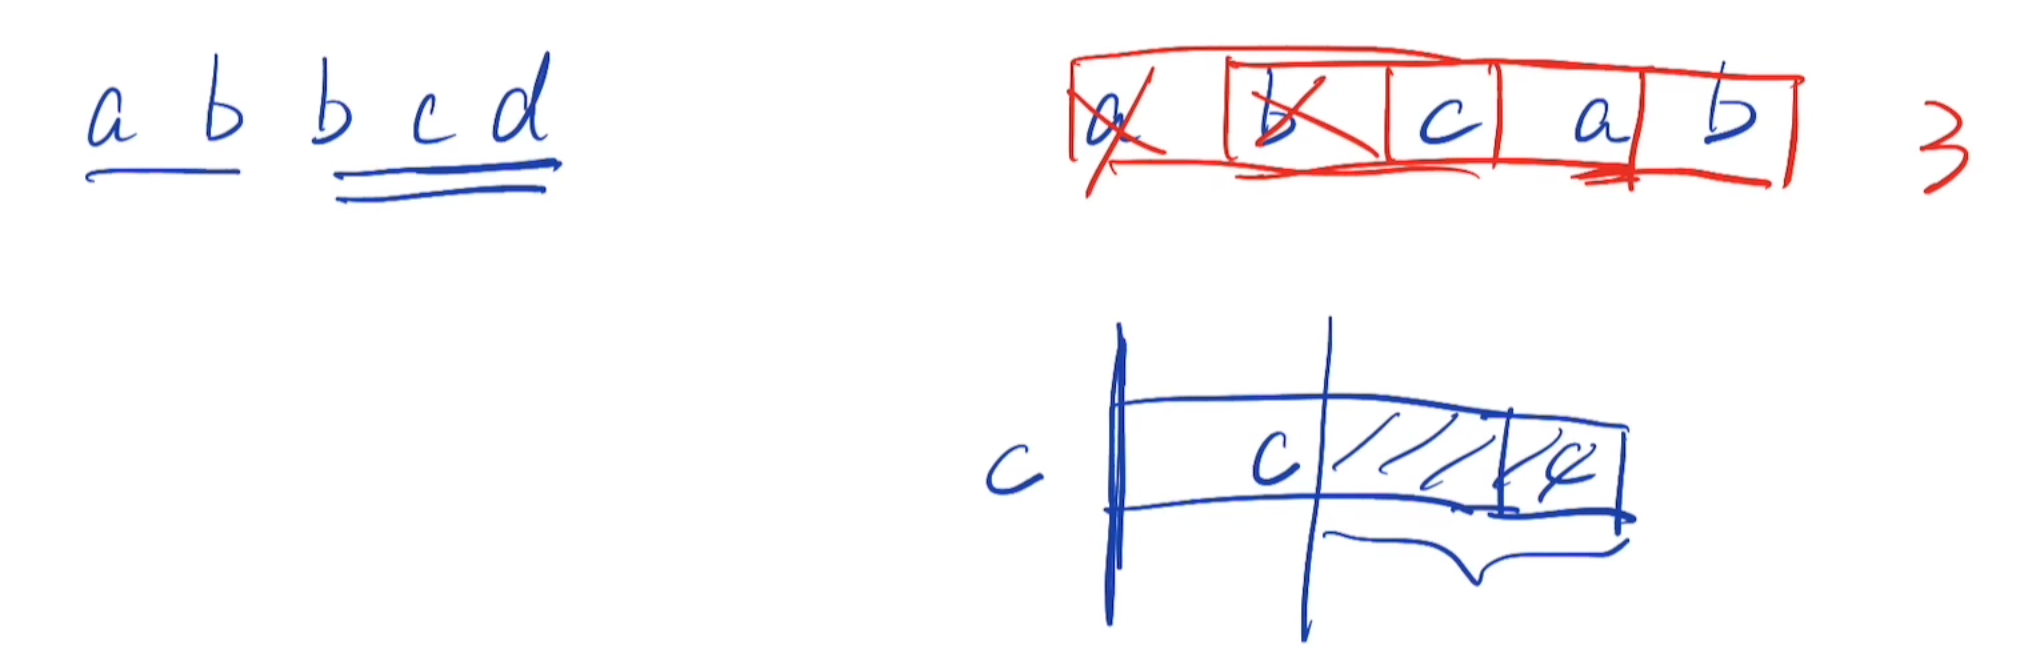 a b b c d
a b c a b 3
c c c